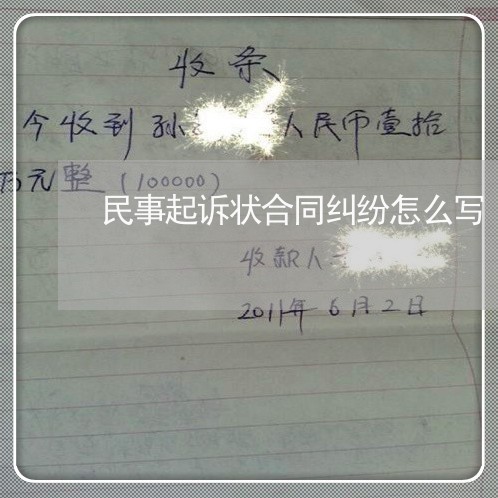 收条
今收到孙 人民币壹拾
万元整(100000)
民事起诉状合同纠纷怎么写
收款人
2011年6月2日